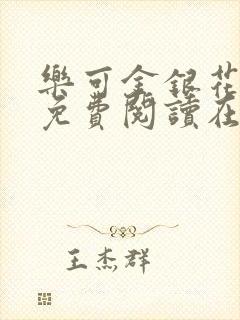 樂可金銀花
免費閱讀在
王杰群